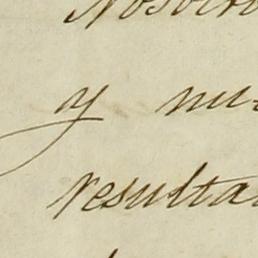 Nosotro
y nu
resulta